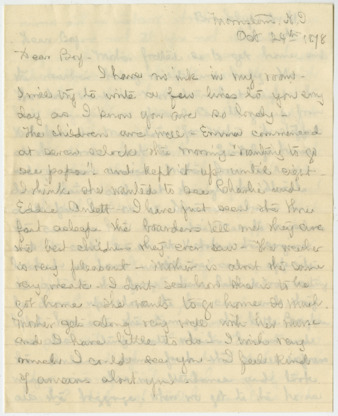 Oct. 24th 1898
Dear Boy-
I have no ink in my room.
I will try to write a few lines to you every
day as I know you are so lonely-
The children are well- Emma commenced
at seven o'clock this morning "wanting to go
see papa" and kept it up until eight.
I think she wanted to see Charlie and
Eddie. I have just seen the three
fast asleep the boarders tell me they are
the best children they ever saw- The weather
is very pleasant- Mother is about the same
very weak I don't see how she is to
get home- She wants to go home so much.
Mother got along very well with the nurse
and I have little to do- I wish very
much I could see you I feel kind
of anxious about
the baggage, to the